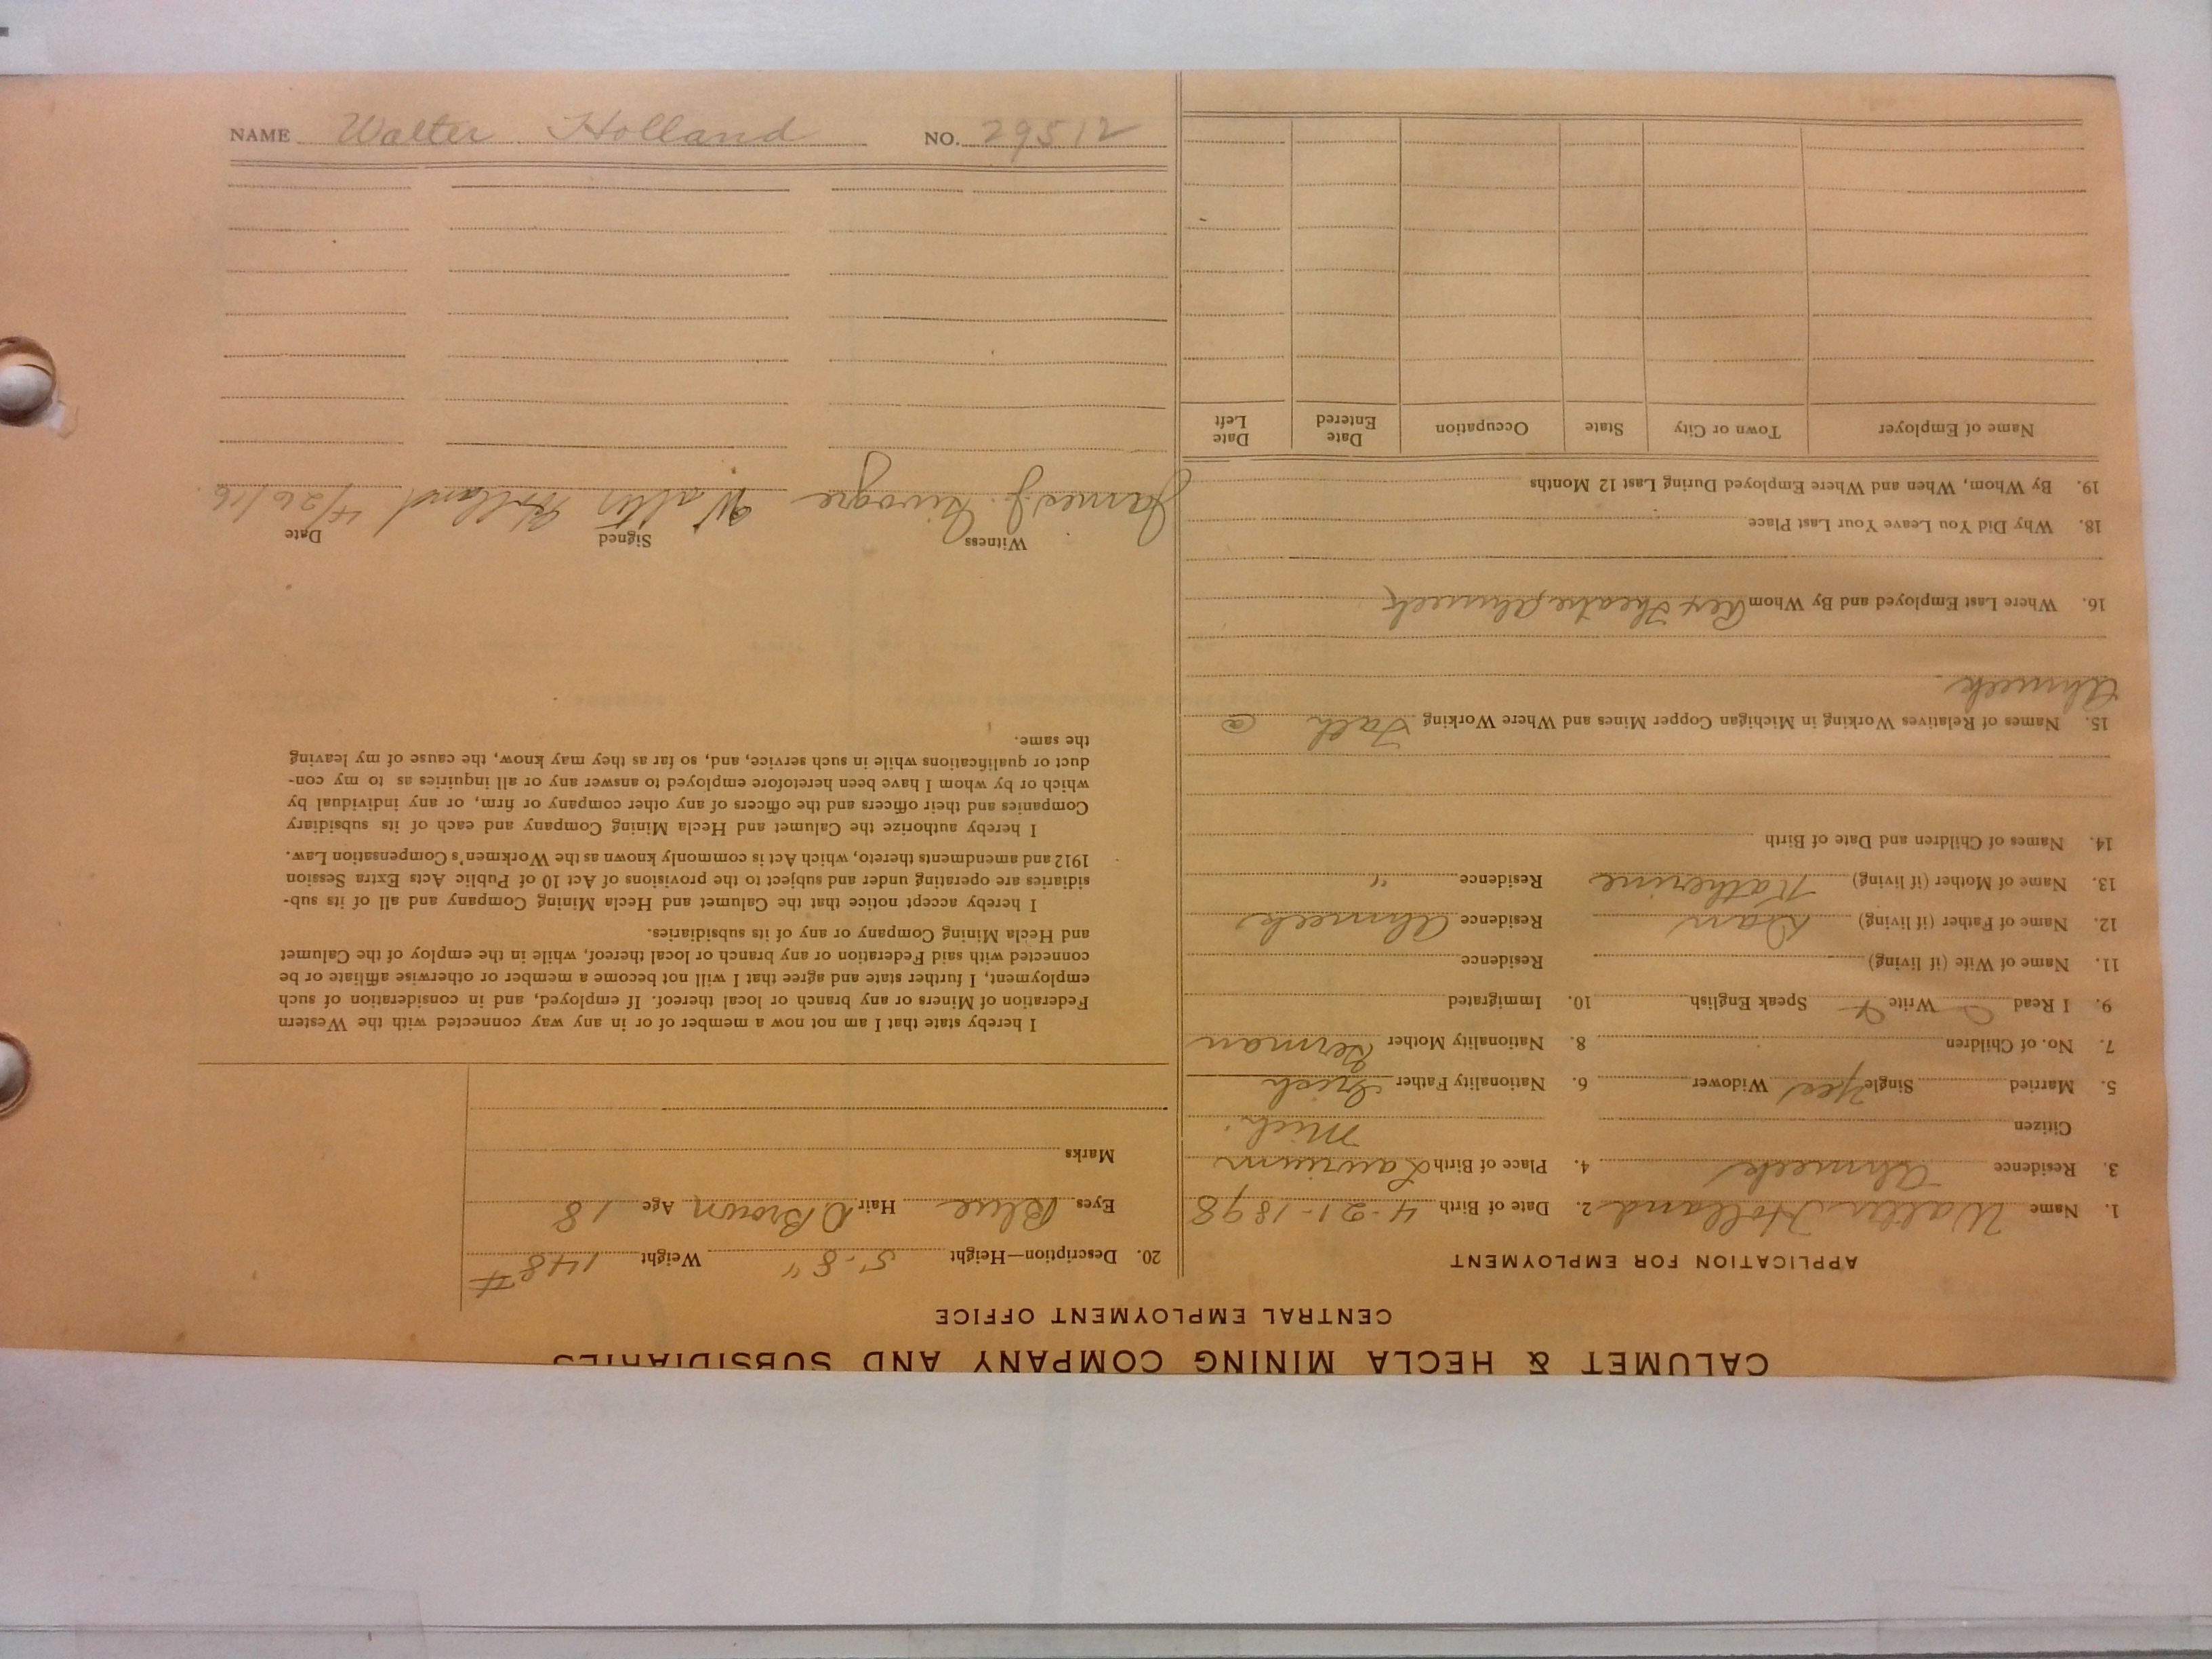 NAME Walter Holland NO. 29512
CALUMET & HECLA MINING COMPANY AND SUBSIDIARIES
CENTRAL EMPLOYMENT OFFICE
APPLICATION FOR EMPLOYMENT
1. Name Walter Holland 2. Date of Birth 4-21-1898
3. Residence Ahmeek 4. Place of Birth Laurium
Citizen Mich.
5. Married Single Yes Widower 6. Nationality Father Irish
7. No. of Children 8. Nationality Mother German
9. I Read Write Speak English 10. Immigrated
11. Name of Wife (if living) Residence
12. Name of Father (if living) Dan Residence Ahmeek
13. Name of Mother (if living) Katherine Residence "
14. Names of Children and Date of Birth
15. Names of Relatives Working in Michigan Copper Mines and Where Working Fath @
Ahmeek
16. Where Last Employed and By Whom Rex Theatre, Ahmeek
18. Why Did You Leave Your Last Place
19. By Whom, When and Where Employed During Last 12 Months
Name of Employer Town or City State Occupation Date Entered Date Left
20. Description—Height 5-8" Weight 148#
Eyes Blue Hair D Brown Age 18
Marks
I hereby state that I am not now a member of or in any way connected with the Western
Federation of Miners or any branch or local thereof. If employed, and in consideration of such
employment, I further state and agree that I will not become a member or otherwise affiliate or be
connected with said Federation or any branch or local thereof, while in the employ of the Calumet
and Hecla Mining Company or any of its subsidiaries.
I hereby accept notice that the Calumet and Hecla Mining Company and all of its sub-
sidiaries are operating under and subject to the provisions of Act 10 of Public Acts Extra Session
1912 and amendments thereto, which Act is commonly known as the Workmen's Compensation Law.
I hereby authorize the Calumet and Hecla Mining Company and each of its subsidiary
Companies and their officers and the officers of any other company or firm, or any individual by
which or by whom I have been heretofore employed to answer any or all inquiries as to my con-
duct or qualifications while in such service, and, so far as they may know, the cause of my leaving
the same.
Witness Signed Date
James J. Walter Holland 4/26/16